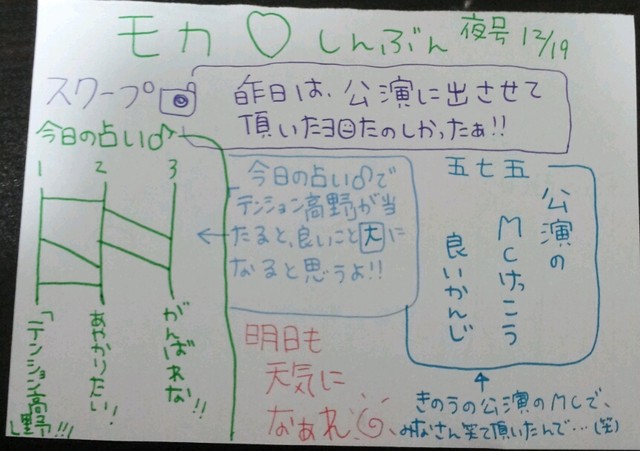 モカ♡しんぶん 夜号 12/19
スクープ
昨日は、公演に出させて
頂いたヨ たのしかったぁ!!
今日の占い♂
1 2 3
「テンション高野」!!!
あやかりたい!
がんばれな!!
今日の占い♂で
「テンション高野が当
たると、良いこと大に
なると思うよ!!
五七五
公演の
MCけっこう
良いかんじ
きのうの公演のMCで、
みなさん笑て頂いたんで…(笑)
明日も
天気に
なぁれ